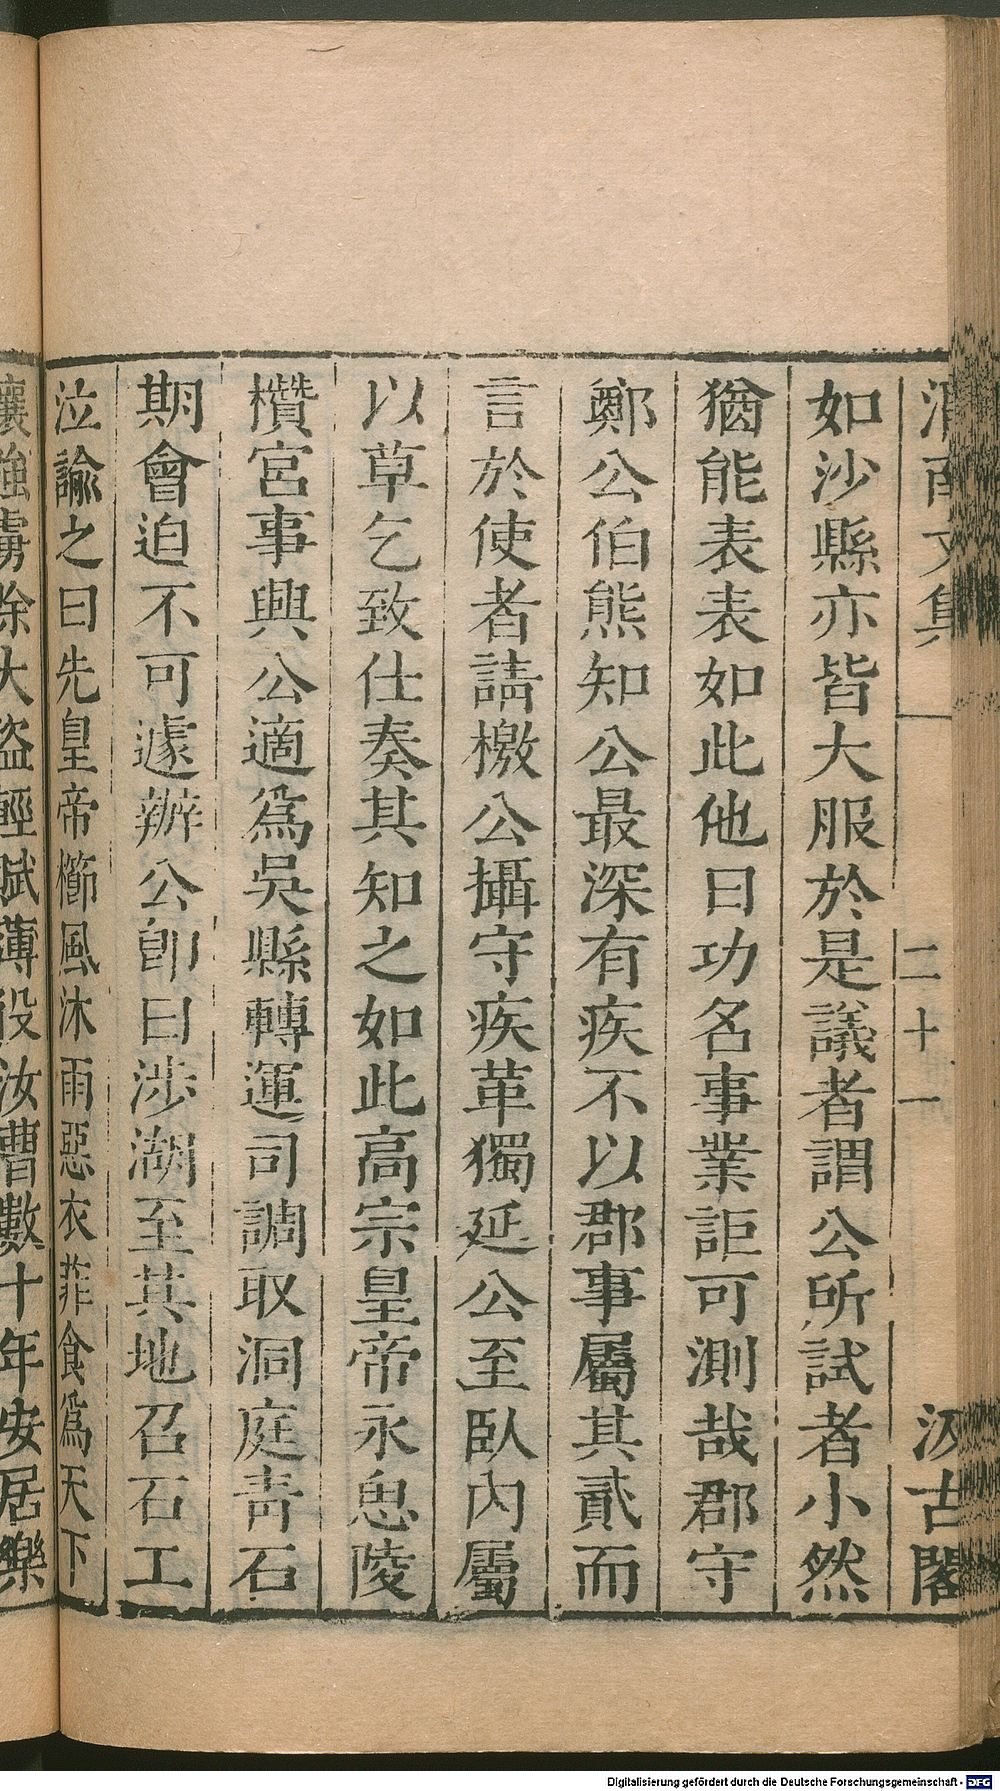 渭南文集 二十一 汲古閣
如沙縣亦皆大服於是議者謂公所試者小然
猶能表表如此他日功名事業詎可測哉郡守
鄭公伯熊知公最深有疾不以郡事屬其貳而
言於使者請檄公攝守疾革獨延公至臥內屬
以草乞致仕奏其知之如此高宗皇帝永思陵
欑宮事興公適爲吳縣轉運司調取洞庭靑石
期會迫不可遽辦公卽日涉湖至其地召石工
泣諭之曰先皇帝櫛風沐雨惡衣菲食爲天下
攘強虜除大盜輕賦薄役汝曹數十年安居樂
Digitalisierung gefördert durch die Deutsche Forschungsgemeinschaft - DFG